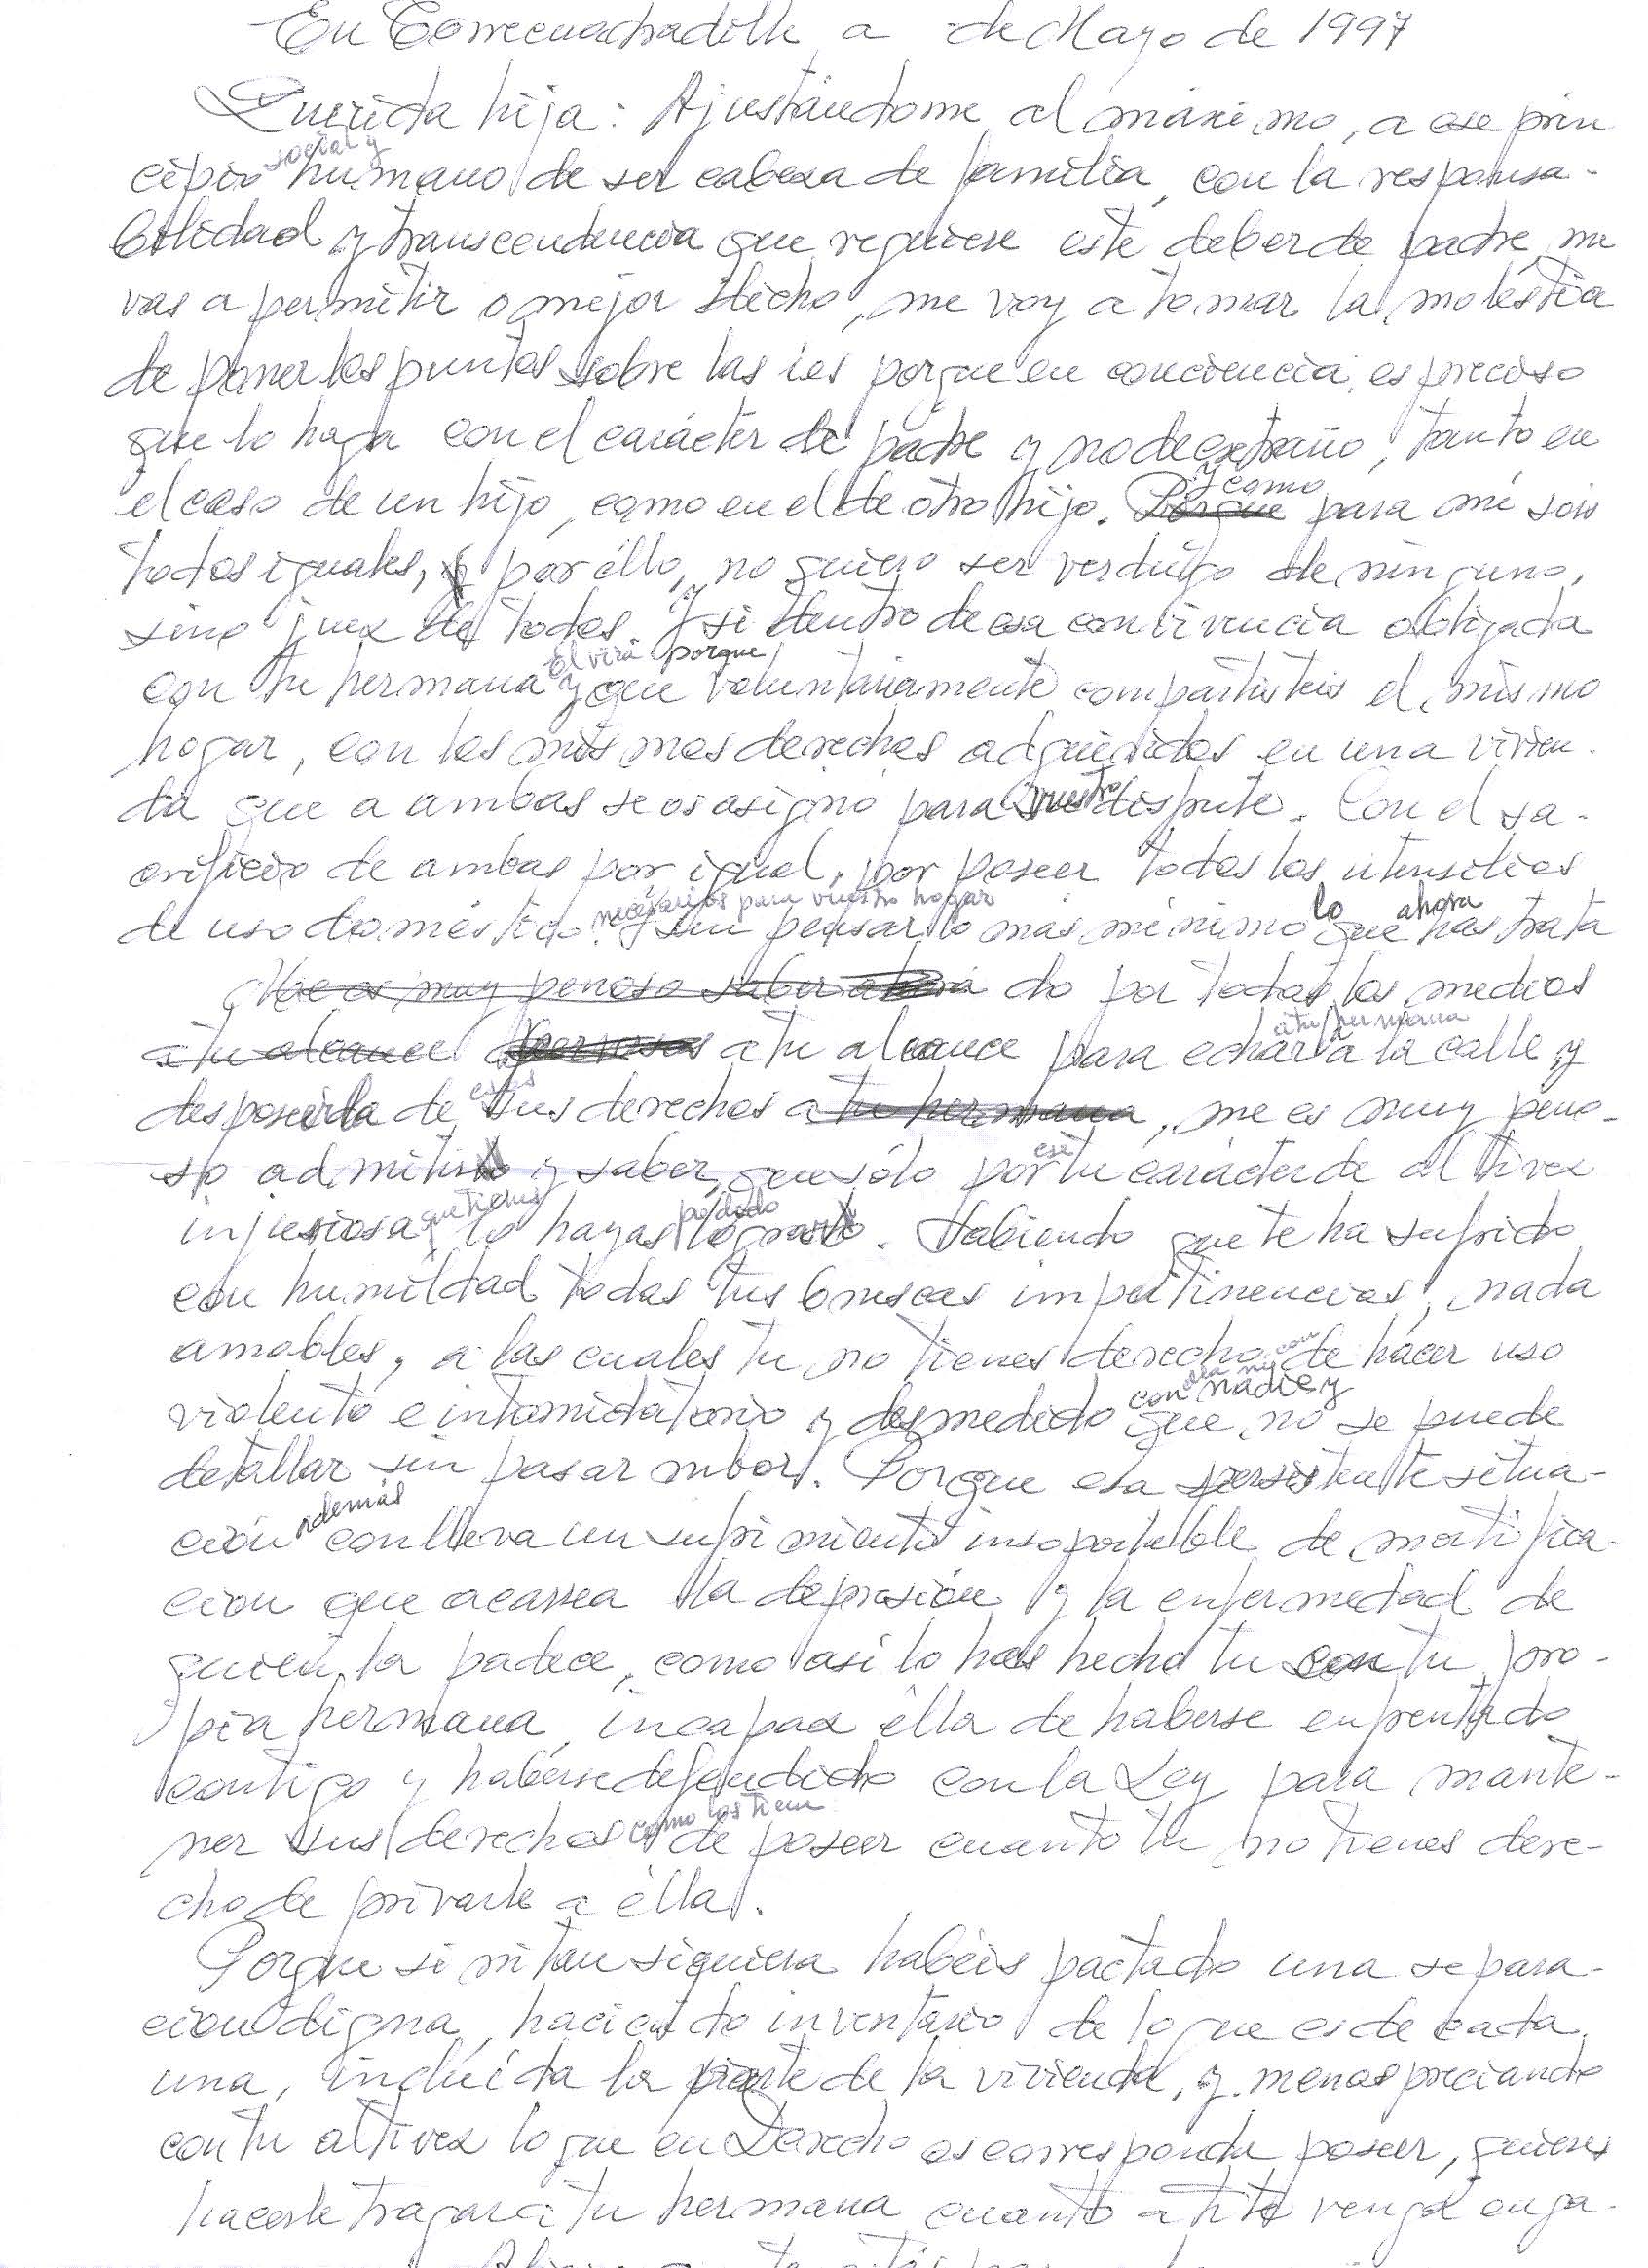 En Torrecuadradilla a de Mayo de 1997
Querida hija: Ajustándome al máximo, a ese prin
cipio social y humano de ser cabeza de familia, con la responsa-
bilidad y transcendencia que requiere este deber de padre, me
vas a permitir o mejor dicho, me voy a tomar la molestia
de poner los puntos sobre las ies porque en conciencia, es preciso
que lo haga con el carácter de padre y no de extraño, tanto en
el caso de un hijo, como en el de otro hijo. Porque y como para mí sois
todos iguales, y por éllo, no quiero ser verdugo de ninguno,
sino juez de todos. Y si dentro de esa convivencia obligada
con tu hermana Elvira y porque que voluntariamente compartisteis el mismo
hogar, con los mismos derechos adquiridos en una vivien-
da que a ambas se os asignó para vuestro disfrute. Con el sa-
crificio de ambas por igual, por poseer todos los utensilios
de uso doméstico necesarios para vuestro hogar y sin pensar lo más mínimo lo que ahora has trata
Me es muy penoso saber ahora do por todos los medios
a tu alcance a tu alcance para echar a tu hermana a la calle y
desposeerla de esos sus derechos a tu hermana, me es muy peno-
so admitir y saber, que sólo por ese tu carácter de altivez
injuriosa que tienes, lo hayas podido lograr. Sabiendo que te ha sufrido
con humildad todas tus bruscas impertinencias, nada
amables, a las cuales tu no tienes derecho de hacer uso
violento e intimidatorio y desmedido con ella ni con nadie y que no se puede
detallar sin pasar rubor. Porque esa persistente situa-
ción además conlleva un sufrimiento insoportable de mortifica-
ción que acarrea la depresión y la enfermedad de
quien la padece, como así lo has hecho tu con tu pro-
pia hermana, incapaz élla de haberse enfrentado
contigo y haberse defendido con la Ley para mante-
ner sus derechos como los tiene de poseer cuanto tu no tienes dere-
cho de privarle a élla.
Porque si ni tan siquiera habéis pactado una separa-
ción digna, haciendo inventario de lo que es de cada
una, incluída la parte de la vivienda, y menospreciando
con tu altivez lo que en Derecho os corresponda poseer, quieres
hacerle tragar a tu hermana cuanto a ti te venga en ga-